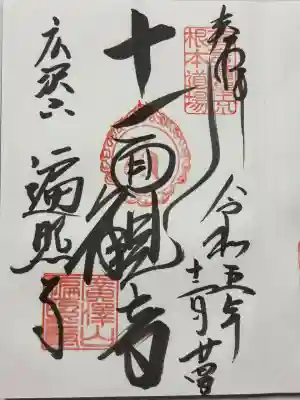 奉拝
根本道場
令和五年
十二月廿四日
十一面観音
広沢山
遍照寺
廣澤山
遍照寺